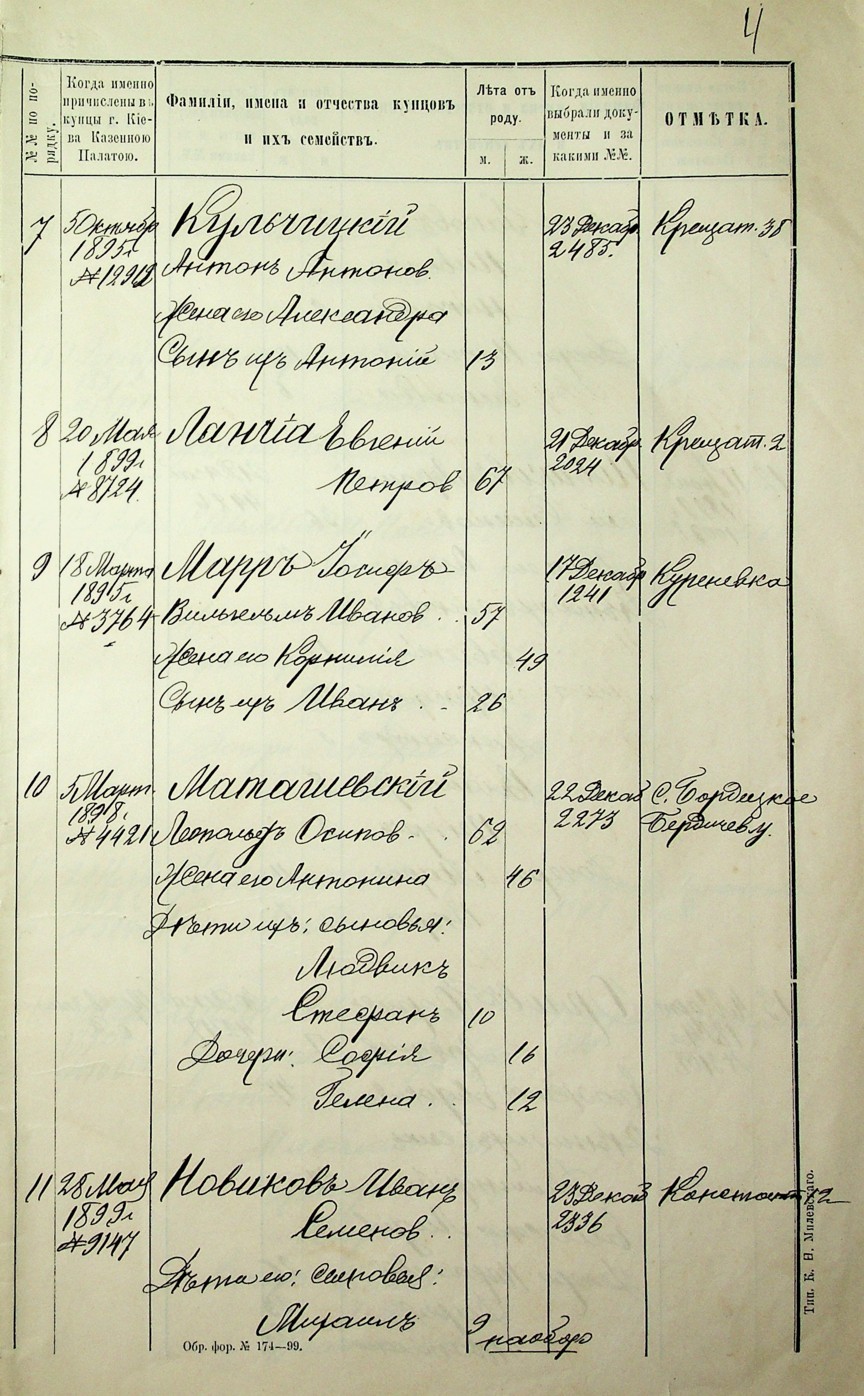 4
№№ по по-
рядку.
Когда именно
причислены въ
купцы г. Кіе-
ва Казенною
Палатою.
Фамиліи, имена и отчества купцовъ
и ихъ семействъ.
Лѣта отъ
роду.
м.
ж.
Когда именно
выбрали доку-
менты и за
какими №№.
ОТМѢТКА.
7 5 Октябр Кульчицкій 23 Декабр Крещат. 38
1895г 2485.
№12912 Антонъ Антонов.
Жена его Александра
Сынъ ихъ Антоній 13
8 20 Мая Ланчіа Евгеній 21 Декабр. Крещат. 2
1899г 2024
№8724 Петров 67
9 18 Марта Марръ Іосифъ 17 Декабр Куреневка
1895г 1241
№3764 Вильгельмъ Иванов. 57
Жена его Корнилія 49
Сынъ ихъ Иванъ 26
10 5 Март. Маташевскій 22 Декаб С. Бордецкое
1898г. 2273 Бердичев у.
№4421 Леопольдъ Осипов. 62
Жена его Антонина 46
Дѣти ихъ: сыновья:
Людвикъ
Стефанъ 10
Дочери: Софія 16
Гелена 12
11 28 Мая Новиковъ Иванъ 23 Декаб Констант 12
1899г 2336
№9147 Семенов.
Дѣти его: сыновья:
Михаилъ 9
на обор
Обр. фор. № 174—99.
Тип. К. Н. Милевскаго.